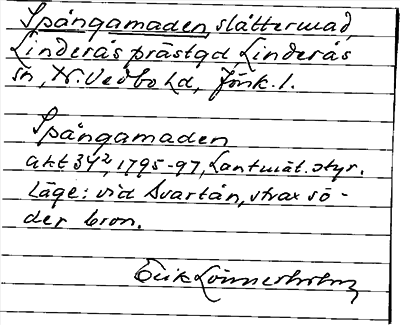 Spångamaden, slåttermad,
Linderås prästgd, Linderås
sn, N. Vedbo hd, Jönk. l.
Spångamaden
akt 34², 1795-97, Lantmät. styr.
Läge: vid Svartån, strax sö-
der bron.
Erik Lönnerholm